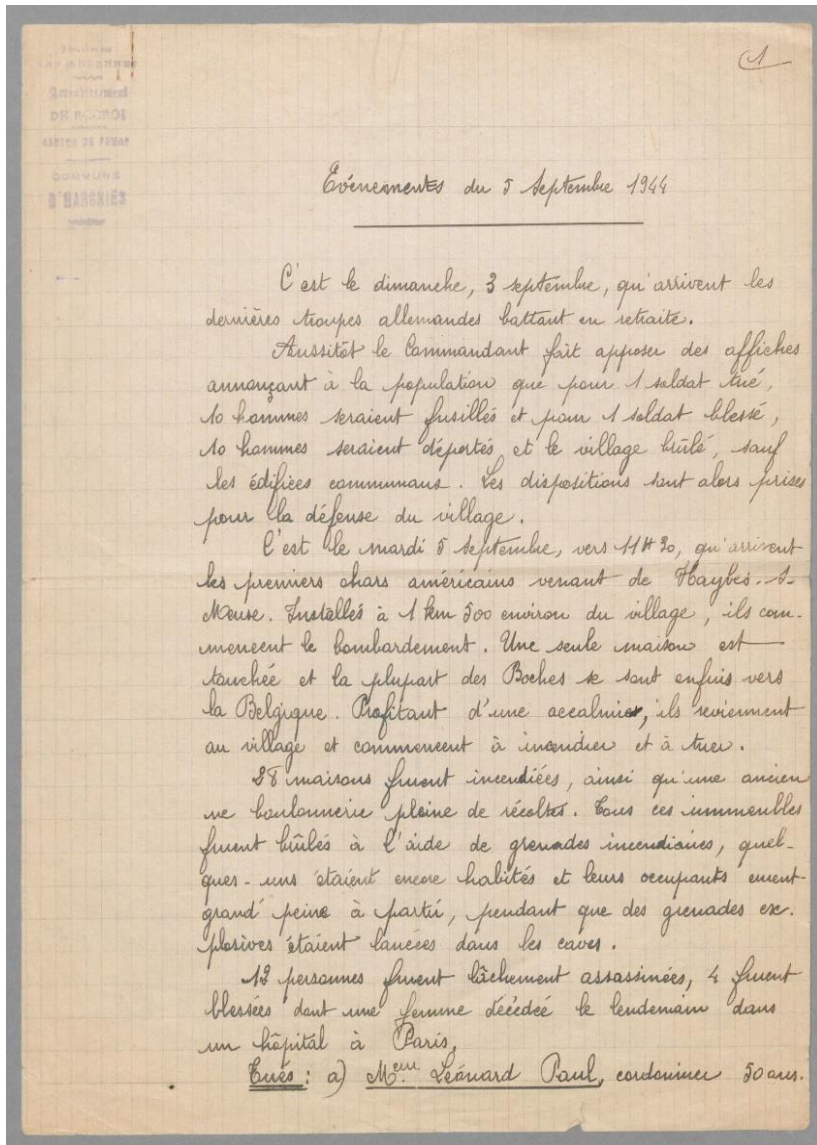 1
DE ROCROI
CANTON DE FUMAY
COMMUNE
D'HARGNIES
Evénements du 5 Septembre 1944
C'est le dimanche, 3 septembre, qu'arrivent les
dernières troupes allemandes battant en retraite.
Aussitôt le Commandant fait apposer des affiches
annonçant à la population que pour 1 soldat tué,
10 hommes seraient fusillés et pour 1 soldat blessé,
10 hommes seraient déportés et le village brûlé, sauf
les édifices communaux. Les dispositions sont alors prises
pour la défense du village.
C'est le mardi 5 septembre, vers 11H30, qu'arrivent
les premiers chars américains venant de Haybes-s-
Meuse. Installés à 1 km 500 environ du village, ils com-
mencent le bombardement. Une seule maison est
touchée et la plupart des Boches se sont enfuis vers
la Belgique. Profitant d'une accalmie, ils reviennent
au village et commencent à incendier et à tuer.
28 maisons furent incendiées, ainsi qu'une ancien
ne boulonnerie pleine de récoltes. Tous ces immeubles
furent brûlés à l'aide de grenades incendiaires, quel-
ques-uns étaient encore habités et leurs occupants eurent
grand' peine à partir, pendant que des grenades ex-
plosives étaient lancées dans les caves.
personnes furent lâchement assassinées, 4 furent
blessées dont une femme décédée le lendemain dans
un hôpital à Paris.
Tués : a) Mr Léonard Paul, cordonnier 50 ans.